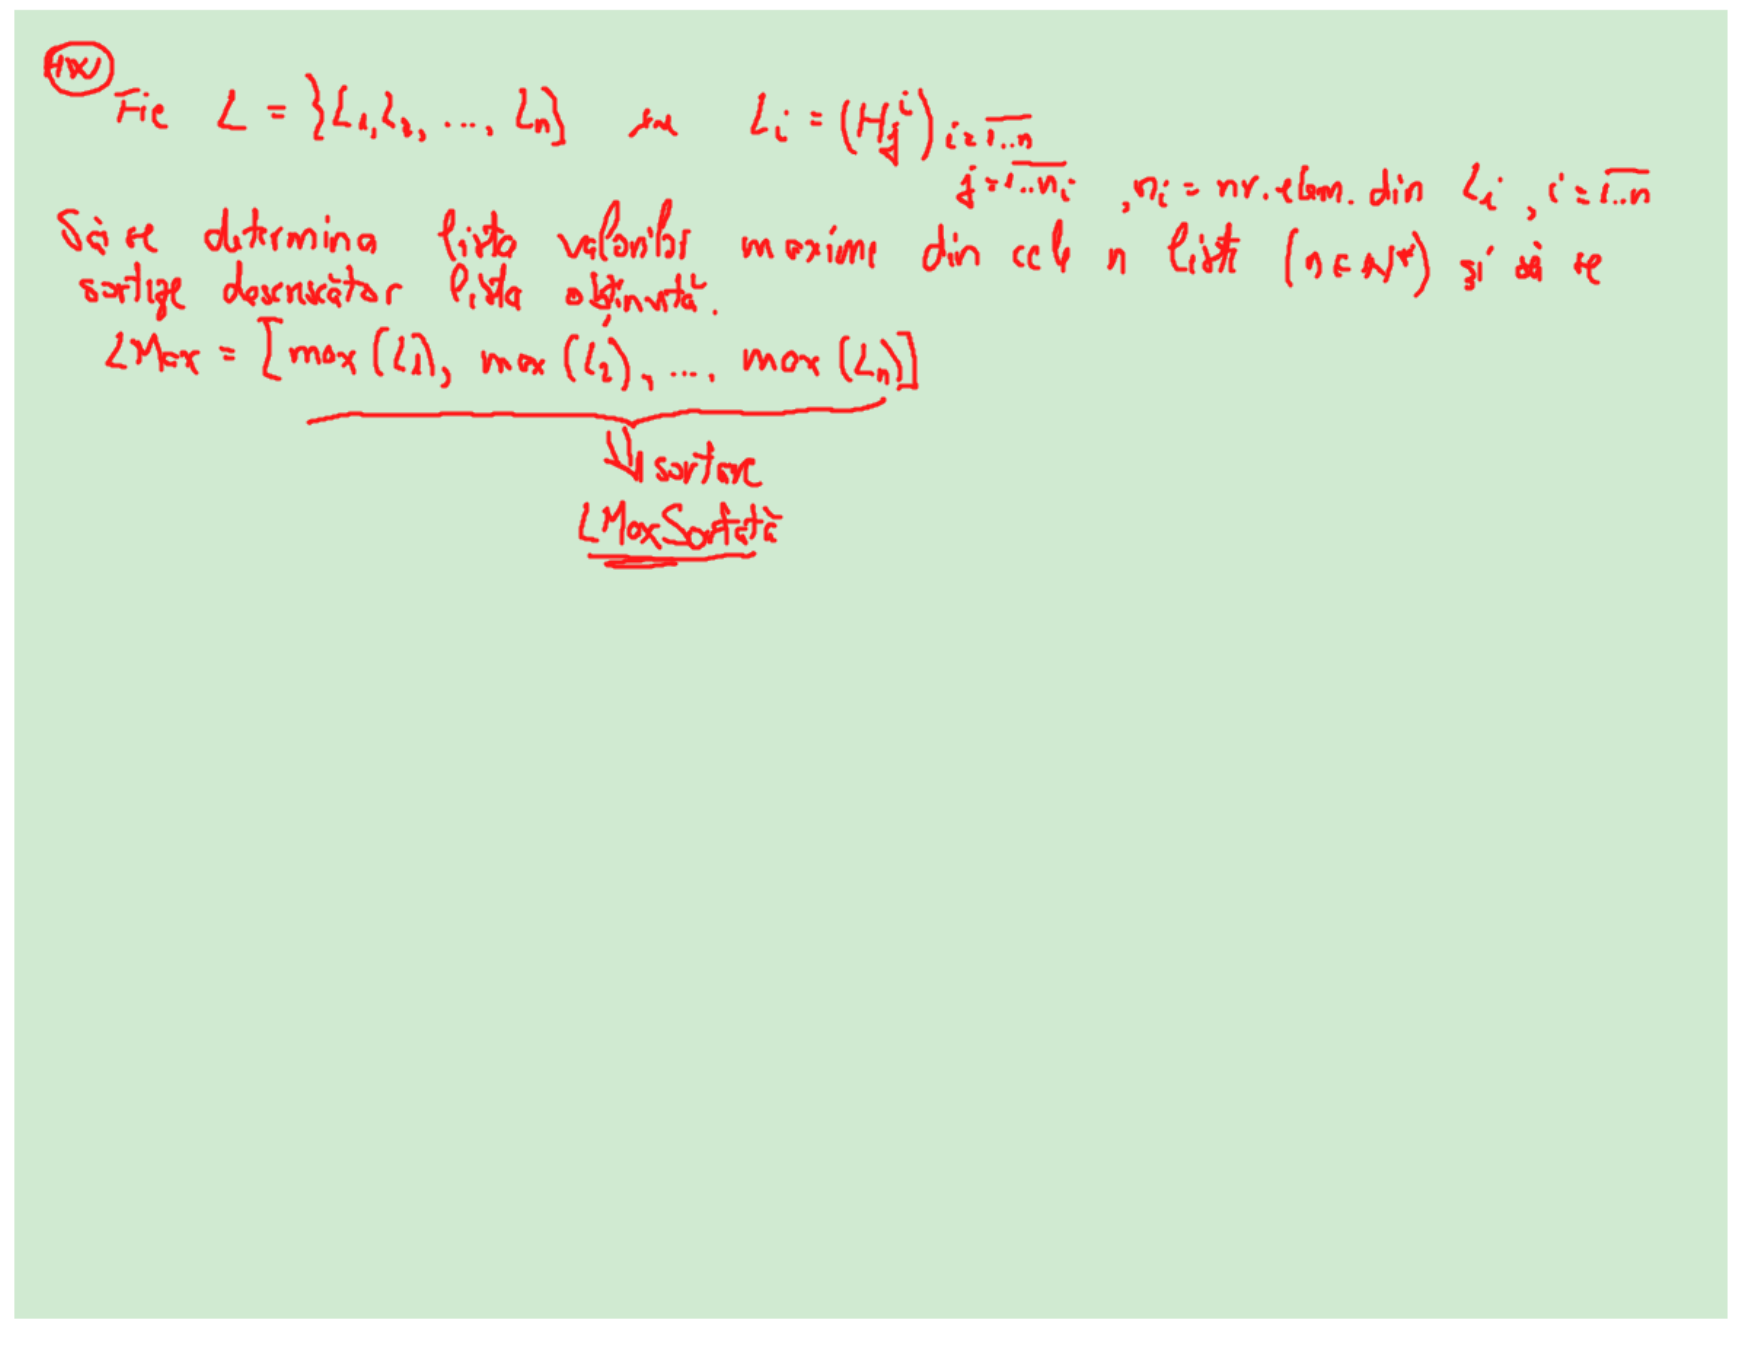 HW
Fie L = {L₁, L₂, ..., Lₙ} sau Lᵢ = (Hⱼⁱ) i = 1..n
j = 1..nᵢ , nᵢ = nr. elem. din Lᵢ , i = 1..n
Să se determina lista valorilor maxime din cele n liste (n ∈ N*) și să se
sorteze descrescător lista obținută.
LMax = [max (L₁), max (L₂), ..., max (Lₙ)]
sortare
LMaxSortată